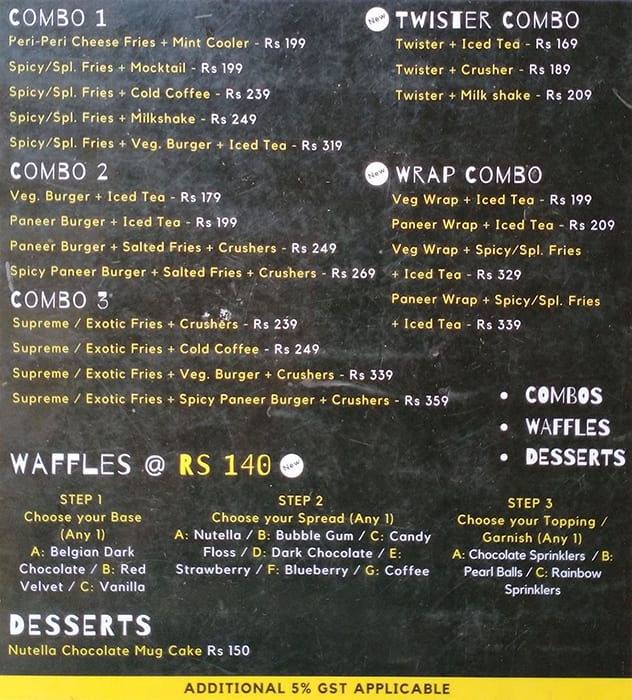 COMBO 1
Peri-Peri Cheese Fries + Mint Cooler - Rs 199
Spicy/Spl. Fries + Mocktail - Rs 199
Spicy/Spl. Fries + Cold Coffee - Rs 239
Spicy/Spl. Fries + Milkshake - Rs 249
Spicy/Spl. Fries + Veg. Burger + Iced Tea - Rs 319
COMBO 2
Veg. Burger + Iced Tea - Rs 179
Paneer Burger + Iced Tea - Rs 199
Paneer Burger + Salted Fries + Crushers - Rs 249
Spicy Paneer Burger + Salted Fries + Crushers - Rs 269
COMBO 3
Supreme / Exotic Fries + Crushers - Rs 239
Supreme / Exotic Fries + Cold Coffee - Rs 249
Supreme / Exotic Fries + Veg. Burger + Crushers - Rs 339
Supreme / Exotic Fries + Spicy Paneer Burger + Crushers - Rs 359
New TWISTER COMBO
Twister + Iced Tea - Rs 169
Twister + Crusher - Rs 189
Twister + Milk shake - Rs 209
New WRAP COMBO
Veg Wrap + Iced Tea - Rs 199
Paneer Wrap + Iced Tea - Rs 209
Veg Wrap + Spicy/Spl. Fries
+ Iced Tea - Rs 329
Paneer Wrap + Spicy/Spl. Fries
+ Iced Tea - Rs 339
• COMBOS
• WAFFLES
• DESSERTS
WAFFLES @ RS 140 New
STEP 1
Choose your Base
(Any 1)
A: Belgian Dark
Chocolate / B: Red
Velvet / C: Vanilla
STEP 2
Choose your Spread (Any 1)
A: Nutella / B: Bubble Gum / C: Candy
Floss / D: Dark Chocolate / E:
Strawberry / F: Blueberry / G: Coffee
STEP 3
Choose your Topping /
Garnish (Any 1)
A: Chocolate Sprinklers / B:
Pearl Balls / C: Rainbow
Sprinklers
DESSERTS
Nutella Chocolate Mug Cake Rs 150
ADDITIONAL 5% GST APPLICABLE